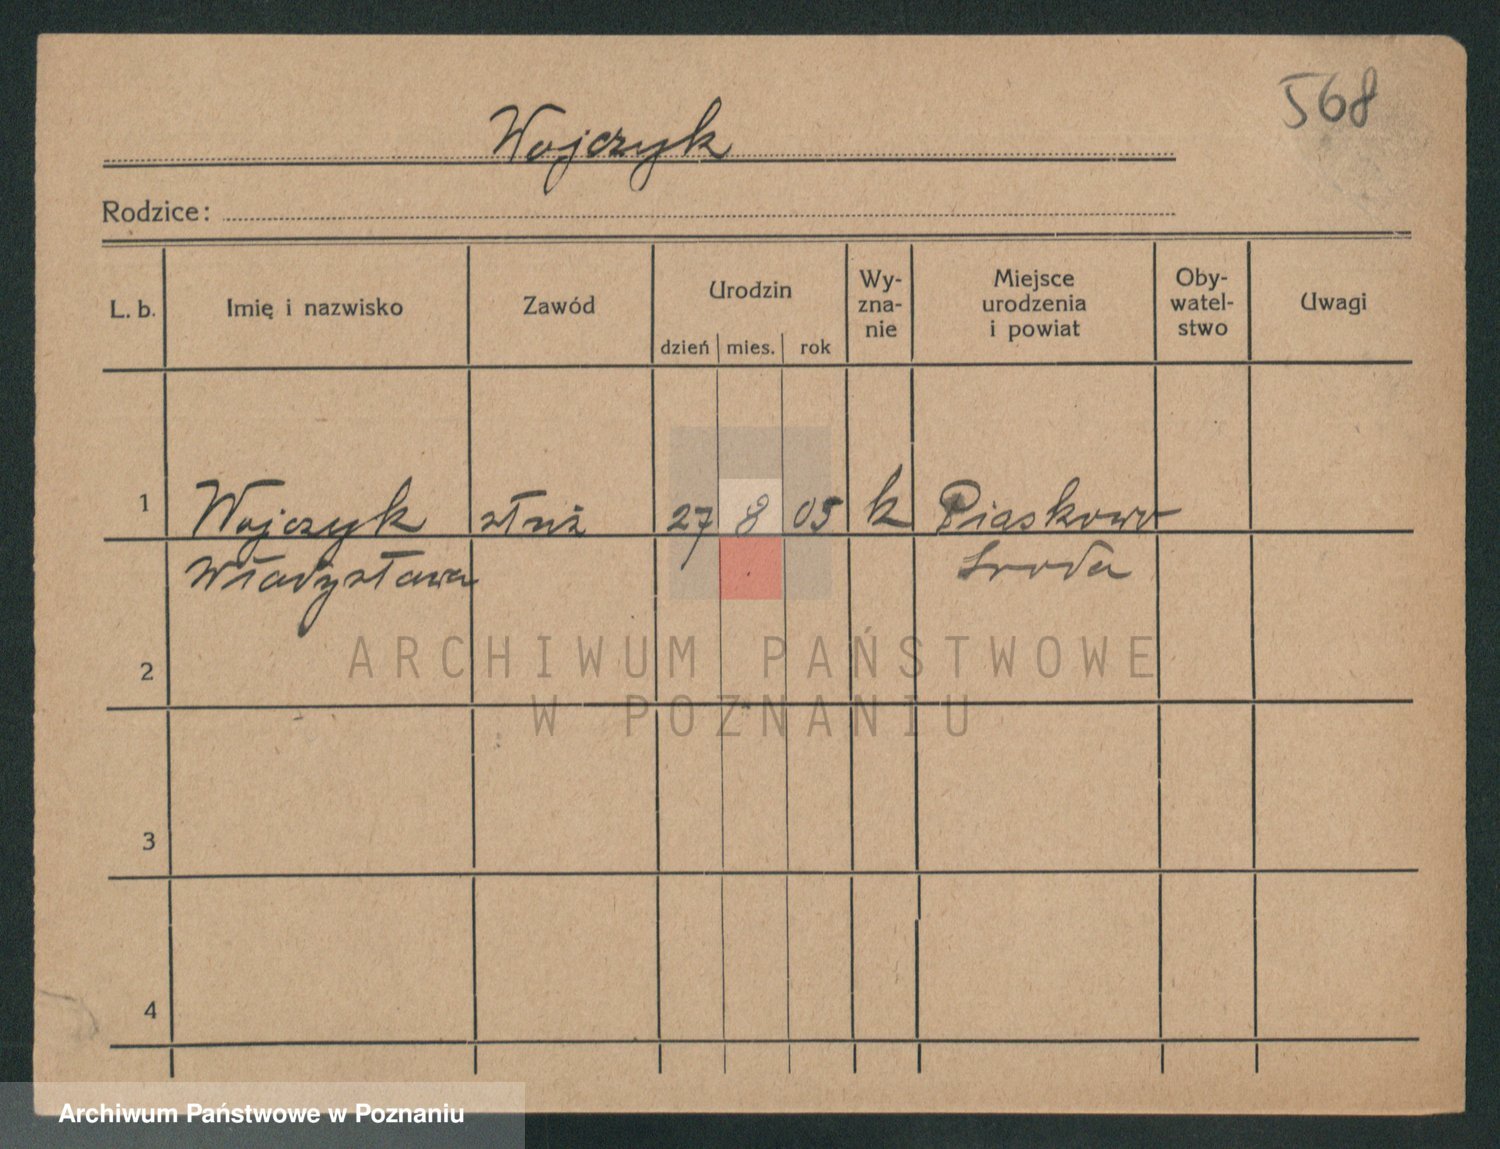 568
Wojczyk
Rodzice:
L. b.
Imię i nazwisko
Zawód
Urodzin
dzień mies. rok
Wy-
zna-
nie
Miejsce
urodzenia
i powiat
Oby-
watel-
stwo
Uwagi
1 Wojczyk służ 27 8 05 k Piaskowo
Władysława Sroda
2
3
4
ARCHIWUM PAŃSTWOWE
W POZNANIU
Archiwum Państwowe w Poznaniu